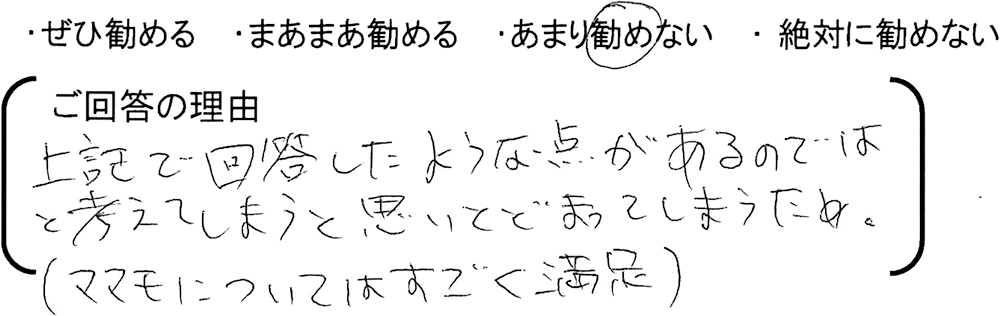 ・ぜひ勧める ・まあまあ勧める ・あまり勧めない ・絶対に勧めない
ご回答の理由
上記で回答したような点があるのでは
と考えてしまうと思いとどまってしまうため。
(ママモについてはすごく満足)